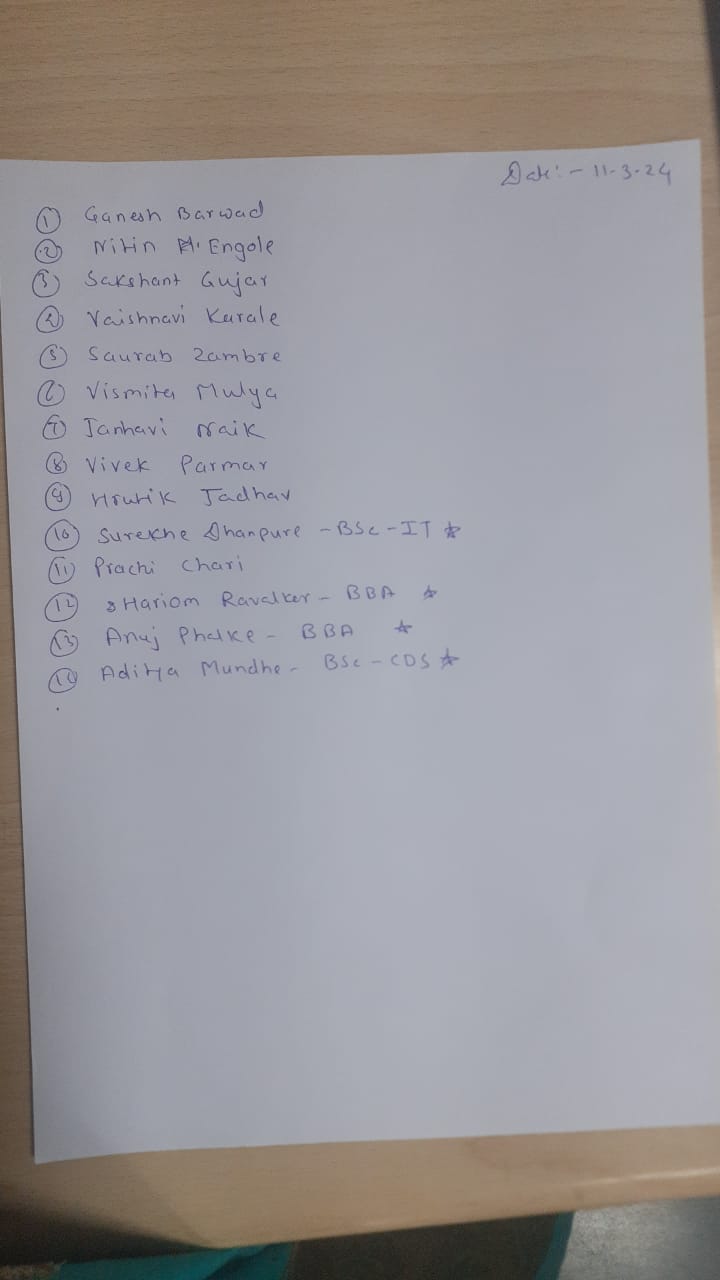 Date:- 11-3-24
1 Ganesh Barwad
2 Nitin Engole
3 Sakshant Gujar
4 Vaishnavi Karale
5 Saurab Zambre
6 Vismita Mulya
7 Janhavi Naik
8 Vivek Parmar
9 Hrutik Jadhav
10 Surekha Dhanpure - BSc - IT ☆
11 Prachi Chari
12 Hariom Ravalker - BBA ☆
13 Anuj Phalke - BBA ☆
14 Aditya Mundhe - BSc - CDS ☆